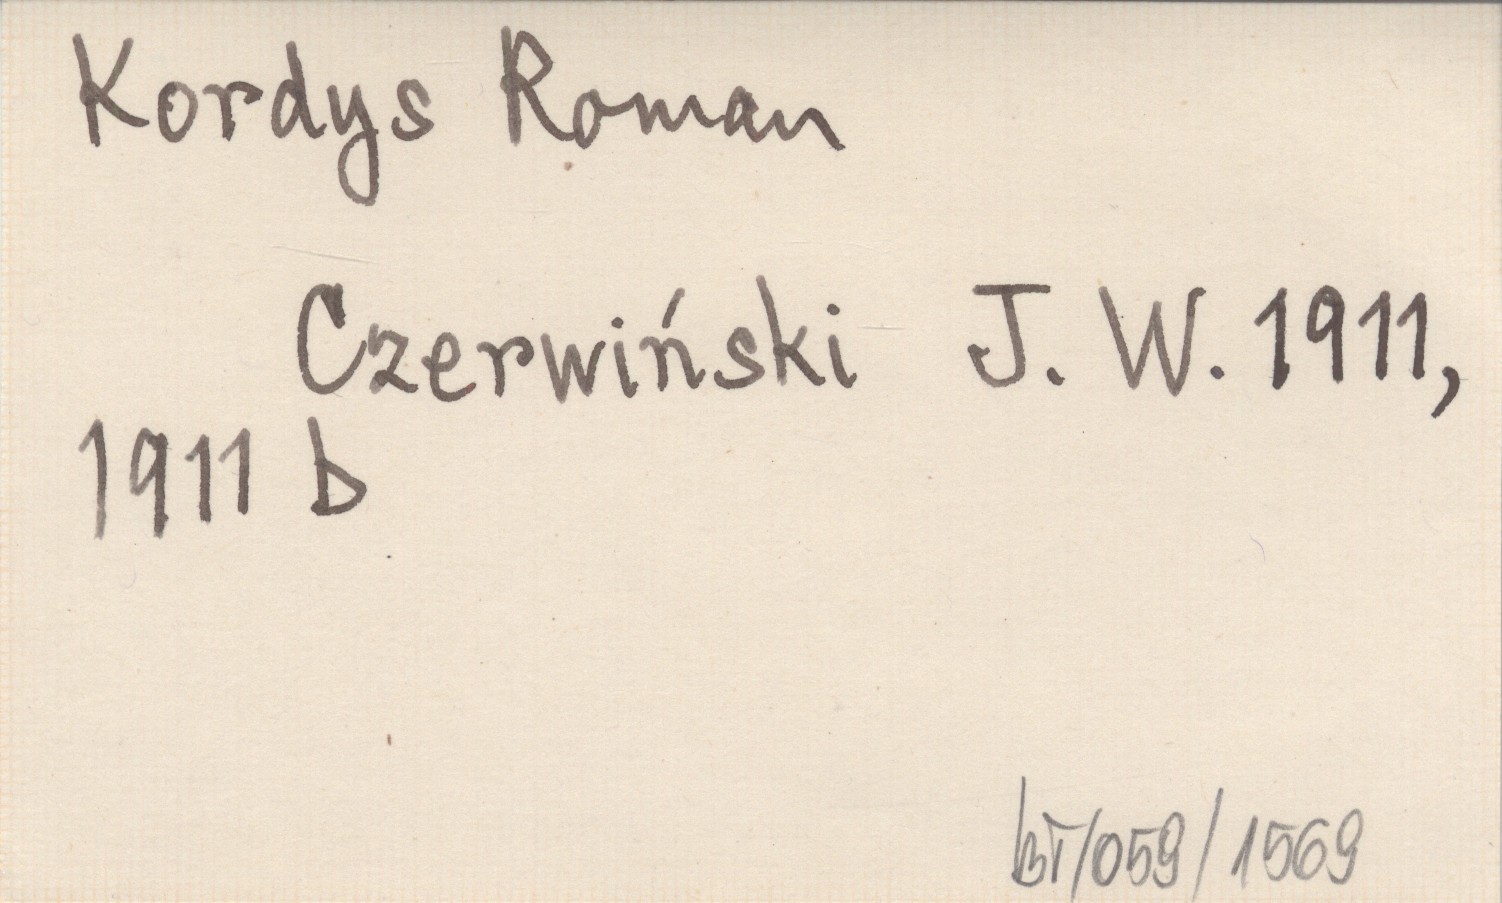 Kordys Roman
Czerwiński J. W. 1911,
1911 b
bT/059/1569